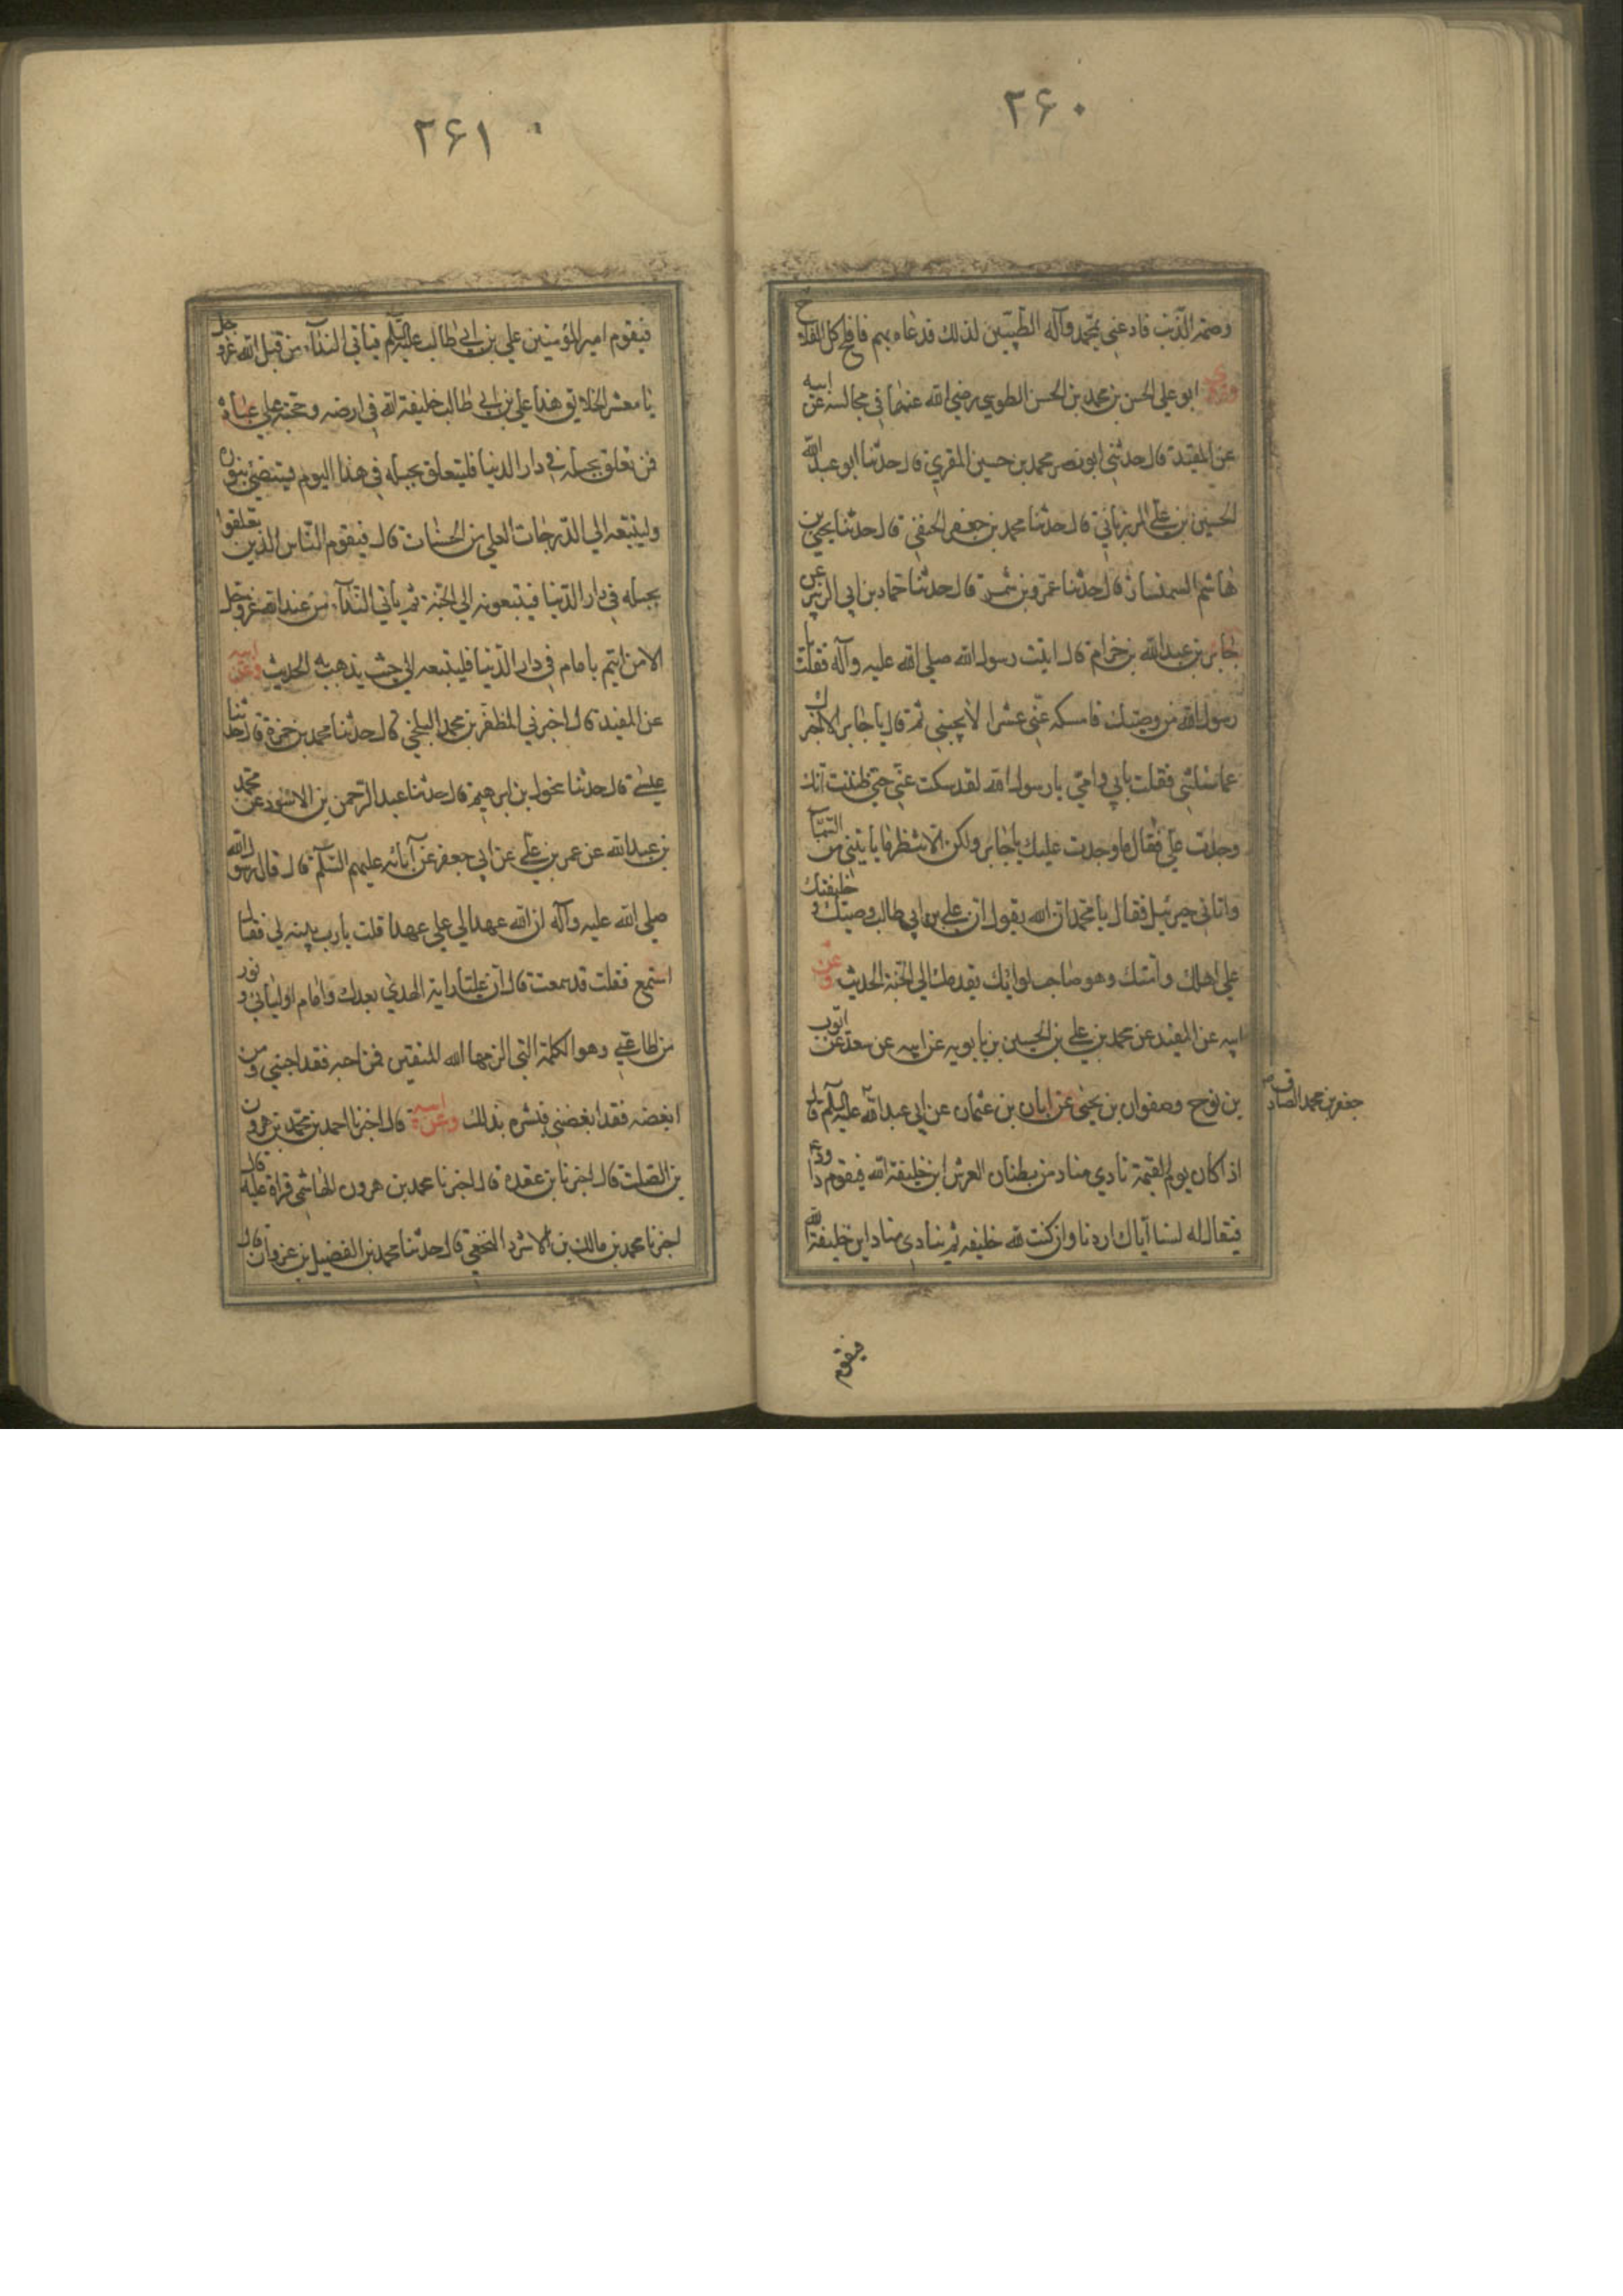 ۲۶۰
وصمه الذنب فادعني بمحمد وآله الطيبين لذلك قد عاه بهم فافلح كل الفلاح
وروى ابو علي الحسن بن محمد بن الحسن الطوسي رضي الله عنهما في مجالسه عن ابيه
عن المفيد قال حدثني ابو نصر محمد بن حسين المقري قال حدثنا ابو عبد الله
الحسين بن علي المرزباني قال حدثنا محمد بن جعفر الحنفي قال حدثنا يحيى بن
هاشم السمسار قال حدثنا عمرو بن شمر قال حدثنا حماد بن ابي الزبير عن
جابر بن عبد الله بن خرام قال اتيت رسول الله صلي الله عليه وآله فقلت يا
رسول الله من وصيك فامسكه عني عشرا لا يجيبني ثم قال يا جابر الا اخبرك
عما سئلتني فقلت بابي وامي يا رسول الله لقد سكت عني حتي ظننت انك
وجدت علي فقال ما وجدت عليك يا جابر ولكن انتظر ما ياتيني من السماء
واتاني جبرئيل فقال يا محمد ان الله يقول ان علي بن ابي طالب وصيك وخليفتك
علي اهلك وامتك وهو صاحب لوائك يقدمك الي الجنة الحديث وعن
ابيه عن المفيد عن محمد بن علي بن الحسين بن بابويه عن ابيه عن سعد عن ايوب
بن نوح وصفوان بن يحيي عن ابان بن عثمان عن ابي عبد الله عليه السلام قال
جعفر بن محمد الصادق
اذا كان يوم القيمة نادي مناد من بطنان العرش اين خليفة الله فيقوم داود
فيقال له لسنا اياك اردنا وان كنت لله خليفه ثم ينادي مناد اين خليفة الله
فيقوم
۲۶۱
فيقوم امير المؤمنين علي بن ابي طالب عليه السلام فياتي النداء من قبل الله عز وجل
يا معشر الخلائق هذا علي بن ابي طالب خليفة الله في ارضه وحجته علي عباده
فمن تعلق بحبله في دار الدنيا فليتعلق بحبله في هذا اليوم فيستضيئ بنوره
وليتبعه الي الدرجات العلي من الجنات قال فيقوم الناس الذين تعلقوا
بحبله في دار الدنيا فيتبعونه الي الجنة ثم ياتي النداء من عند الله عز وجل
الا من ائتم بامام في دار الدنيا فليتبعه الي حيث يذهب به الحديث وعن ابيه
عن المفيد قال اخبرني المظفر بن محمد البلخي قال حدثنا محمد بن حمزة قال حدثنا
عيسي قال حدثنا مخول بن ابرهيم قال حدثنا عبد الرحمن بن الاسود عن محمد
بن عبد الله عن عمر بن علي عن ابي جعفر عن آبائه عليهم السلام قال قال رسول الله
صلي الله عليه وآله ان الله عهد الي علي عهدا قلت يا رب بينه لي فقال
استمع فقلت قد سمعت قال ان عليا راية الهدي بعدك وامام اوليائي ونور
من اطاعني وهو الكلمة التي الزمها الله المتقين فمن احبه فقد احبني ومن
ابغضه فقد ابغضني فبشره بذلك وعن ابيه قال اخبرنا احمد بن محمد بن هرون
بن الصلت قال اخبرنا بن عقده قال اخبرنا محمد بن هرون الهاشمي قراة عليه قال
اخبرنا محمد بن مالك بن الابرد النخعي قال حدثنا محمد بن الفضيل بن غزوان قال